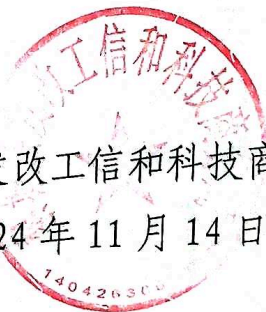 改工信和科技商
发改工信和科技商
24年11月14日
140426300